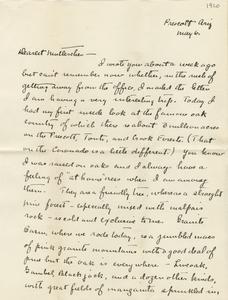 1920
Prescott Ariz
May 6
Dearest Mutterchen —
I wrote you about a week ago
but can't remember now whether, in the rush of
getting away from the office, I mailed the letter
I am having a very interesting trip. Today I
had my first inside look at the famous oak
country of which there is about 3 million acres on
the Prescott, Tonto, and Crook Forests. (That
on the Coronado is a little different.) You know
I was raised on oaks and I always have a
feeling of "at homi'ness when I am among
them. They are a friendly tree, whereas a straight
pine forest — especially mixed with malpais
rock — is cold and exclusive to me. Granite
Basin, where we rode today, is a jumbled mass
of pink granite mountains with a good deal of
pine but the oak is everywhere — Liveoak,
Gambel, Blackjack, and a dozen other kinds,
with great fields of manzanita sprinkled in.